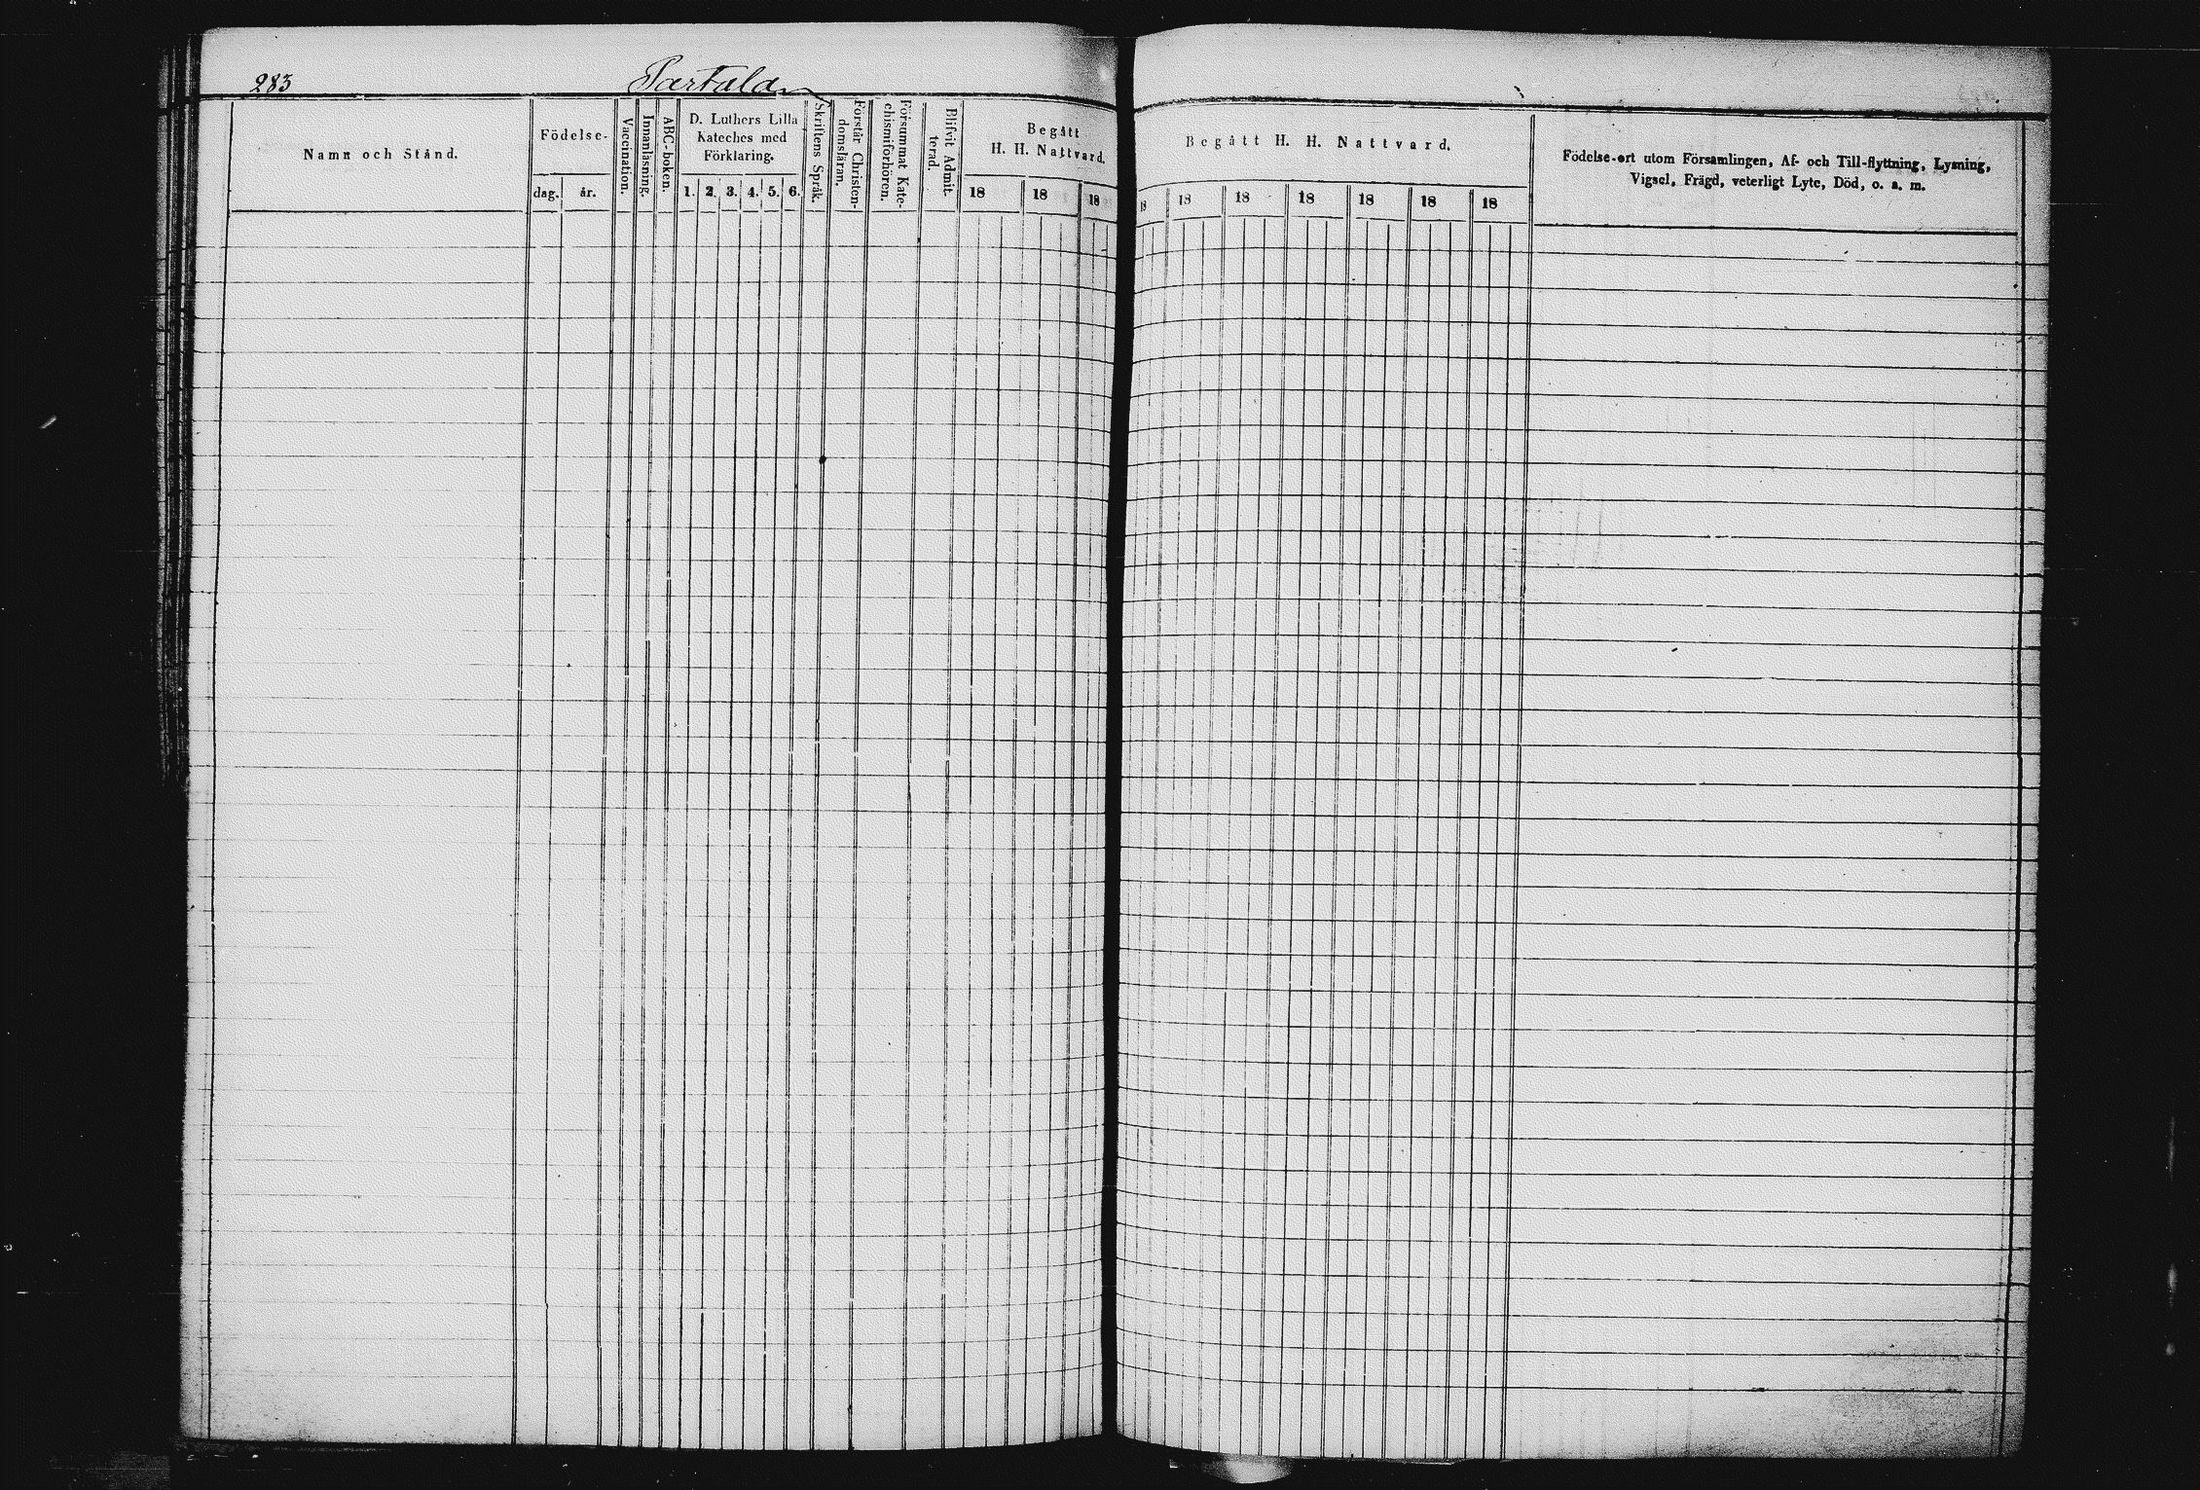 283
Partala
Namn och Stånd.
Födelse-
dag. år.
Vaccination.
Innanläsning.
ABC-boken.
D. Luthers Lilla
Kateches med
Förklaring.
1. 2. 3. 4. 5. 6.
Skriftens Språk.
Förstår Christen-
domsläran.
Försummat Kate-
chismiförhören.
Blifvit Admit-
terad.
Begått
H. H. Nattvard.
18 18 18
Begått H. H. Nattvard.
18 18 18 18 18 18 18
Födelse-ort utom Församlingen, Af- och Till-flyttning, Lysning,
Vigsel, Frägd, veterligt Lyte, Död, o. s. m.